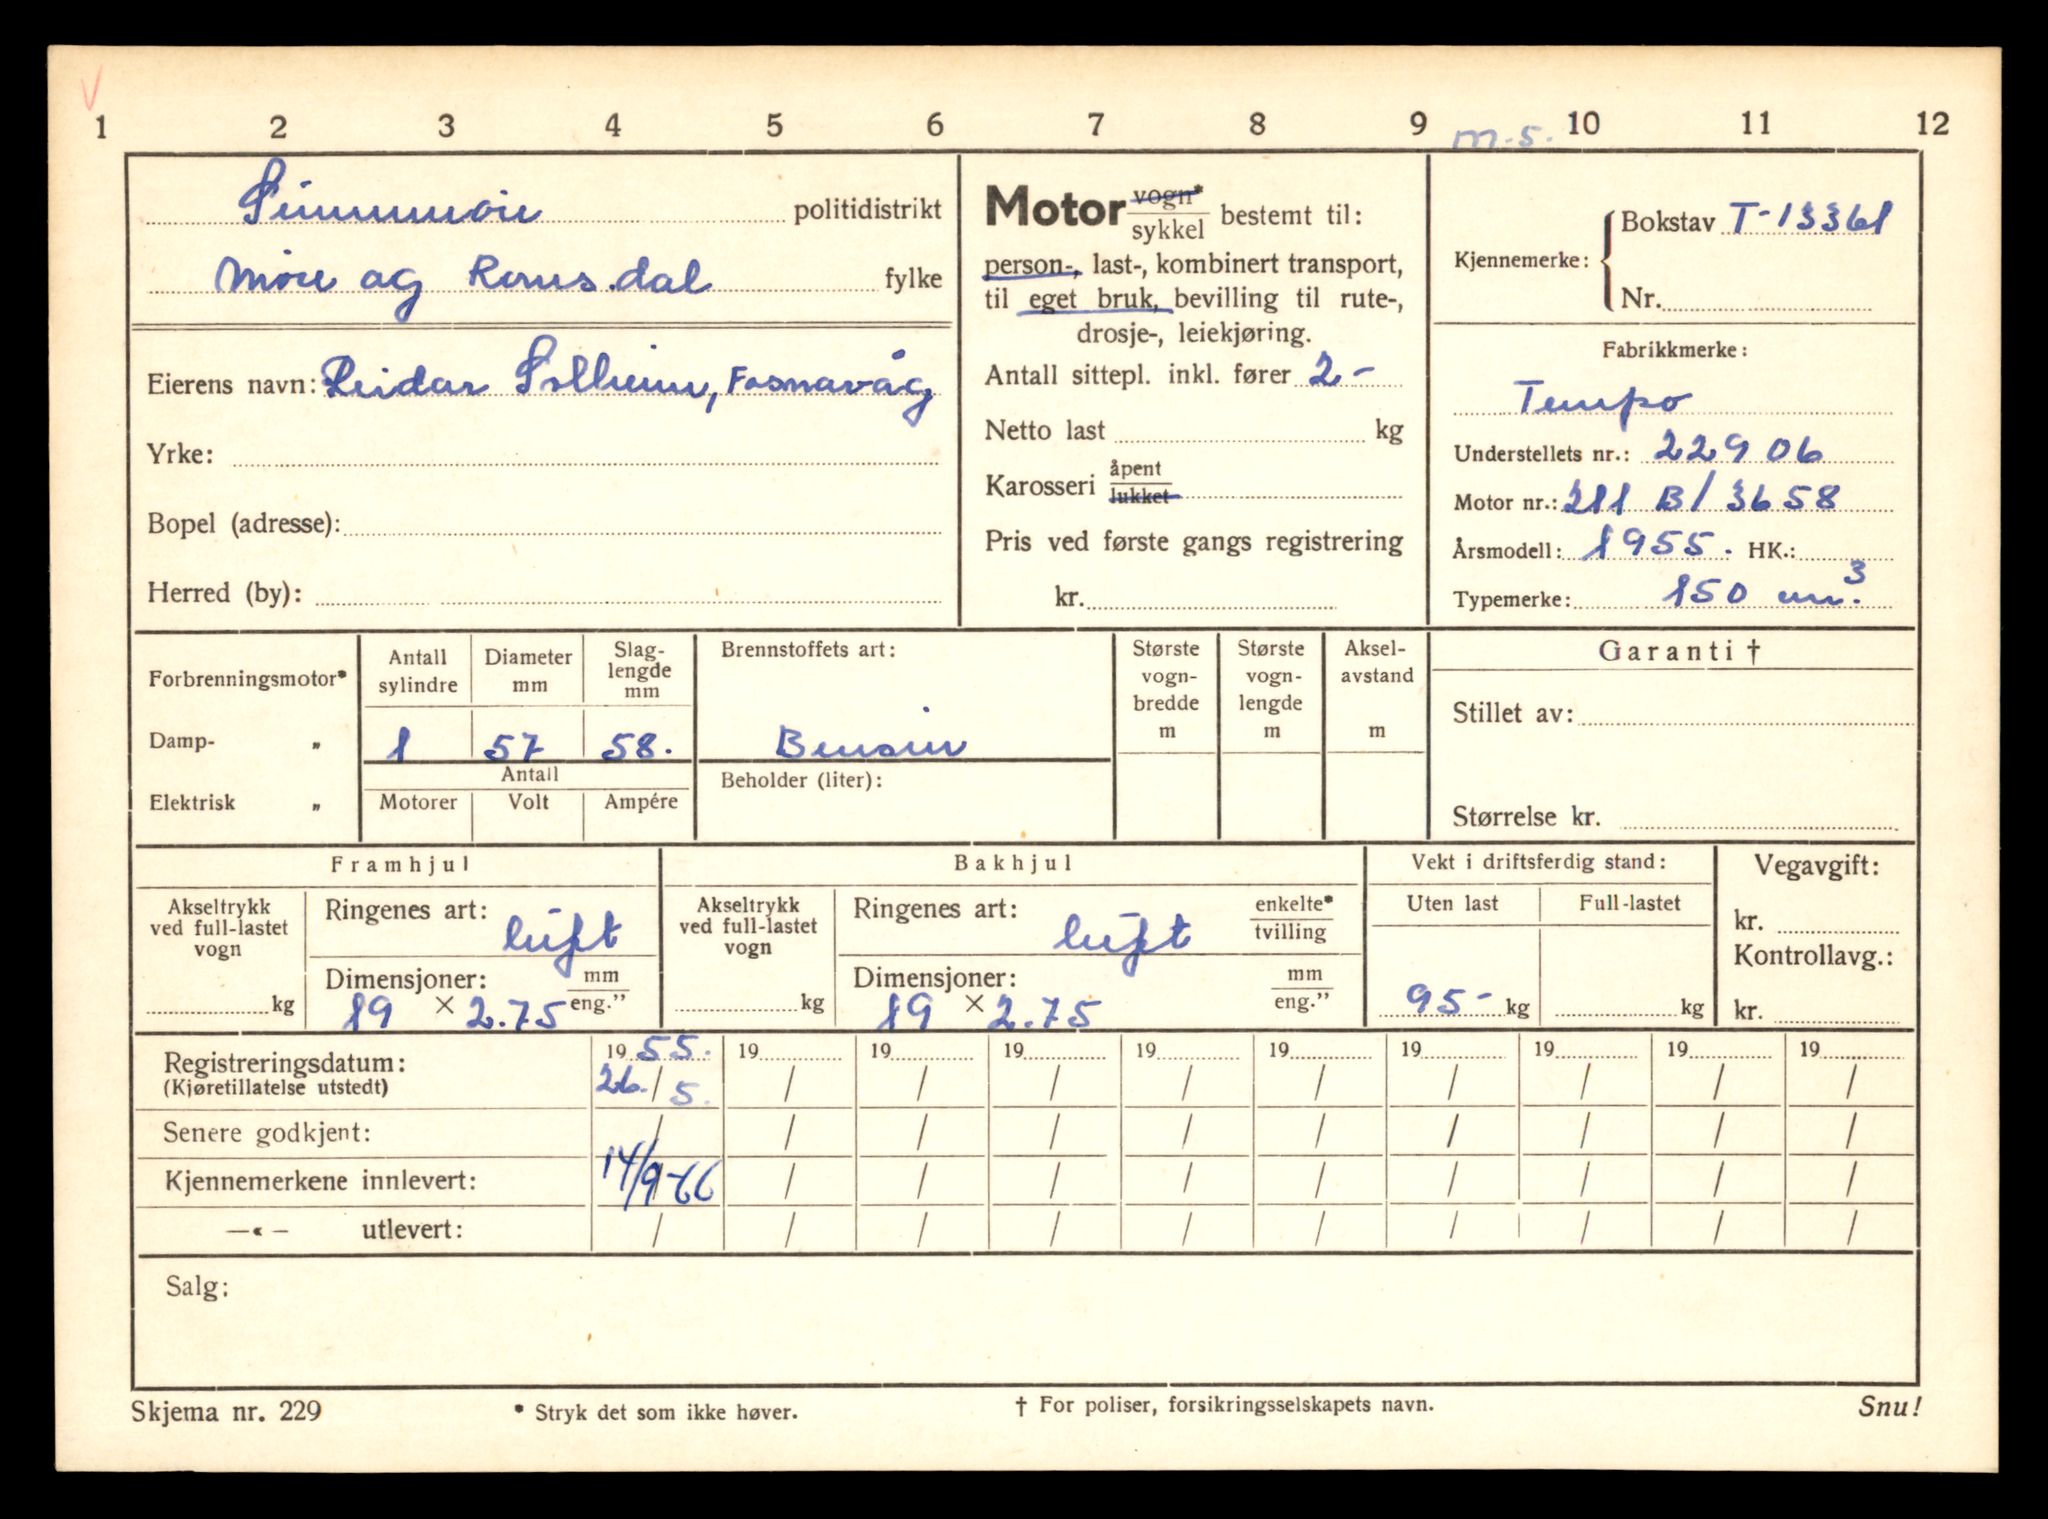 V
1 2 3 4 5 6 7 8 9 10 11 12
m.s.
Sunnmøre politidistrikt
Møre og Romsdal fylke
Eierens navn: Reidar Solheim, Fosnavåg
Yrke:
Bopel (adresse):
Herred (by):
Motor vogn* / sykkel bestemt til:
person-, last-, kombinert transport,
til eget bruk, bevilling til rute-,
drosje-, leiekjøring.
Antall sittepl. inkl. fører 2-
Netto last kg
Karosseri åpent / lukket
Pris ved første gangs registrering
kr.
Kjennemerke: Bokstav T-13361
Nr.
Fabrikkmerke:
Tempo
Understellets nr.: 22906
Motor nr.: 211 B/3658
Årsmodell: 1955. HK.:
Typemerke: 150 cm.³
Forbrenningsmotor*
Damp- „
Elektrisk „
Antall sylindre
Diameter mm
Slag-lengde mm
1 57 58.
Antall
Motorer Volt Ampére
Brennstoffets art:
Bensin
Beholder (liter):
Største vogn-bredde m
Største vogn-lengde m
Aksel-avstand m
Garanti †
Stillet av:
Størrelse kr.
Framhjul
Akseltrykk
ved full-lastet
vogn
kg
Ringenes art: luft
Dimensjoner: mm / eng."
19 × 2.75
Bakhjul
Akseltrykk
ved full-lastet
vogn
kg
Ringenes art: luft enkelte* / tvilling
Dimensjoner: mm / eng."
19 × 2.75
Vekt i driftsferdig stand:
Uten last Full-lastet
95- kg kg
Vegavgift:
kr.
Kontrollavg.:
kr.
Registreringsdatum: 19 55. 19 19 19 19 19 19 19 19 19
(Kjøretillatelse utstedt) 26./5. / / / / / / / / /
Senere godkjent: / / / / / / / / / /
Kjennemerkene innlevert: 14/9-66 / / / / / / / / /
—«— utlevert: / / / / / / / / / /
Salg:
Skjema nr. 229
* Stryk det som ikke høver.
† For poliser, forsikringsselskapets navn.
Snu!